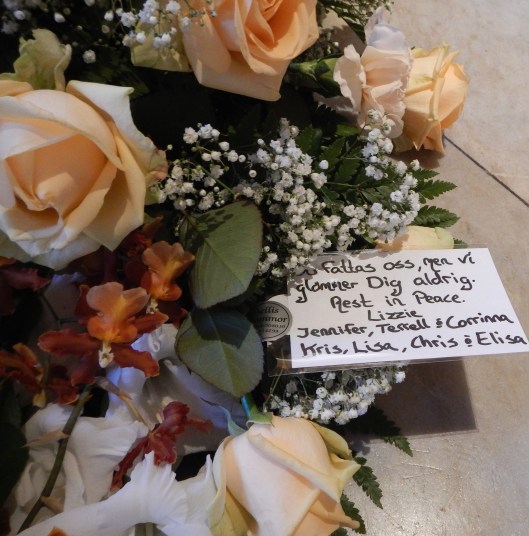 fattas oss, men vi
glömmer Dig aldrig.
Rest in Peace.
Lizzie
Jennifer, Terrell & Corrinna
Kris, Lisa, Chris & Elisa